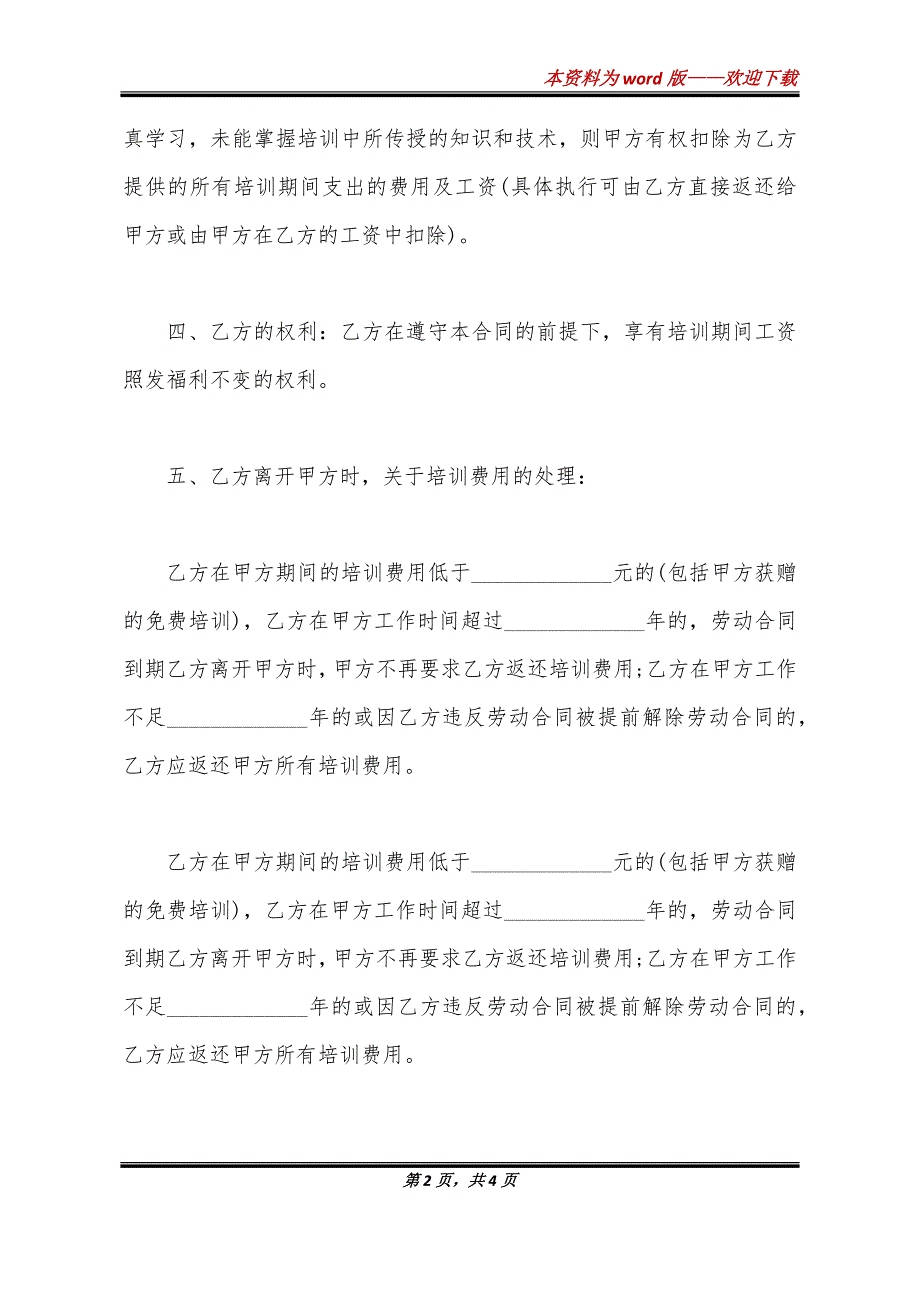 本资料为 word 版——欢迎下载
真学习，未能掌握培训中所传授的知识和技术，则甲方有权扣除为乙方
提供的所有培训期间支出的费用及工资(具体执行可由乙方直接返还给
甲方或由甲方在乙方的工资中扣除)。
四、乙方的权利：乙方在遵守本合同的前提下，享有培训期间工资
照发福利不变的权利。
五、乙方离开甲方时，关于培训费用的处理：
乙方在甲方期间的培训费用低于_____________元的(包括甲方获赠
的免费培训)，乙方在甲方工作时间超过_____________年的，劳动合同
到期乙方离开甲方时，甲方不再要求乙方返还培训费用;乙方在甲方工作
不足_____________年的或因乙方违反劳动合同被提前解除劳动合同的，
乙方应返还甲方所有培训费用。
乙方在甲方期间的培训费用低于_____________元的(包括甲方获赠
的免费培训)，乙方在甲方工作时间超过_____________年的，劳动合同
到期乙方离开甲方时，甲方不再要求乙方返还培训费用;乙方在甲方工作
不足_____________年的或因乙方违反劳动合同被提前解除劳动合同的，
乙方应返还甲方所有培训费用。
第 2 页，共 4 页